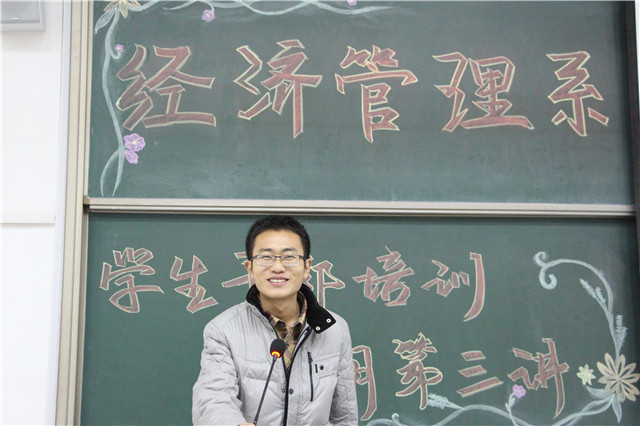 经济管理系
学生干部培训
第三讲